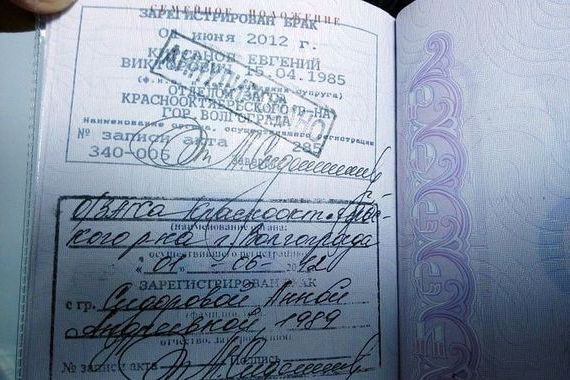 СЕМЕЙНОЕ ПОЛОЖЕНИЕ
ЗАРЕГИСТРИРОВАН БРАК
01 июня 2012 г.
ЕВГЕНИЙ
15.04.1985
супруга)
ОТДЕЛОМ ЗАГСА
КРАСНООКТЯБРЬСКОГО Р-НА
ГОР. ВОЛГОГРАДА
Наименование органа, осуществившего регистрацию
№ записи акта 285
340-006
ОЗАГСа Краснооктябрьс-
кого р-на г. Волгограда
(наименование органа,
осуществившего регистрацию)
"01" - 06 - 2012
ЗАРЕГИСТРИРОВАН БРАК
с гр. Сидоровой Анной
Андреевной, 1989
отчество, дата рождения)
№ записи акта Подпись